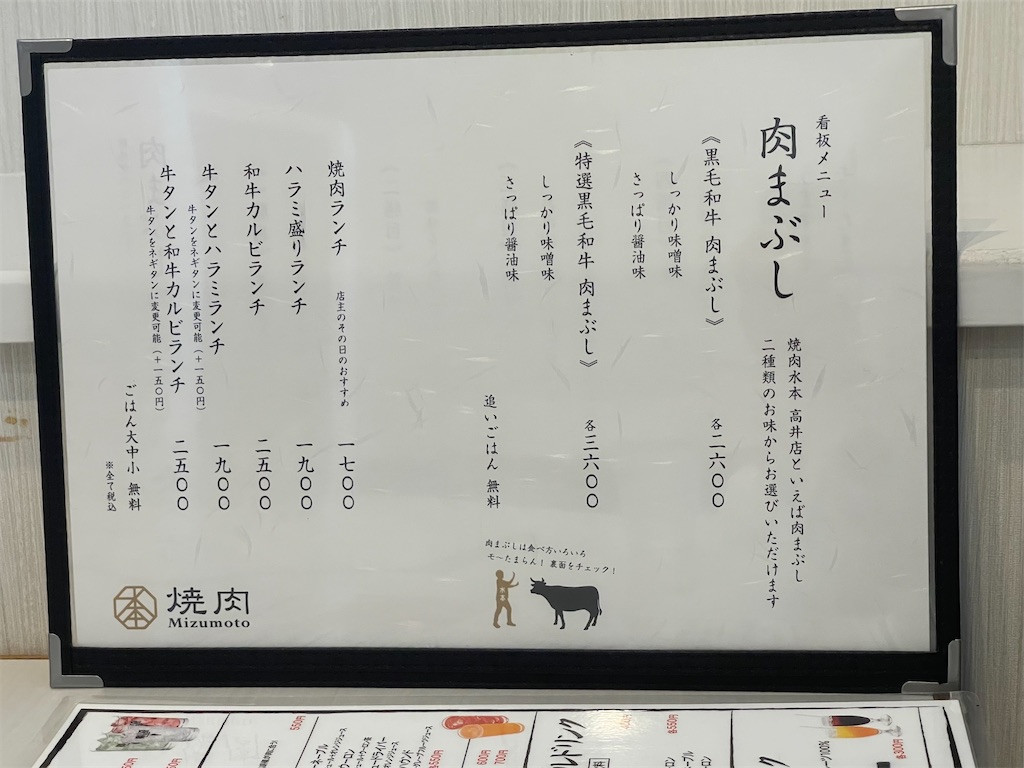 看板メニュー
肉まぶし
焼肉水本 高井店といえば肉まぶし
二種類のお味からお選びいただけます
《黒毛和牛 肉まぶし》 各二六〇〇
しっかり味噌味
さっぱり醤油味
《特選黒毛和牛 肉まぶし》 各三六〇〇
しっかり味噌味
さっぱり醤油味
追いごはん 無料
肉まぶしは食べ方いろいろ
モ〜たまらん! 裏面をチェック!
焼肉ランチ 店主のその日のおすすめ 一七〇〇
ハラミ盛りランチ 一九〇〇
和牛カルビランチ 二五〇〇
牛タンとハラミランチ 一九〇〇
牛タンをネギタンに変更可能(+一五〇円)
牛タンと和牛カルビランチ 二五〇〇
牛タンをネギタンに変更可能(+一五〇円)
ごはん大中小 無料
※全て税込
本
焼肉
Mizumoto
550円
550円
600円
700円
各550円
ルドリンク
各300円